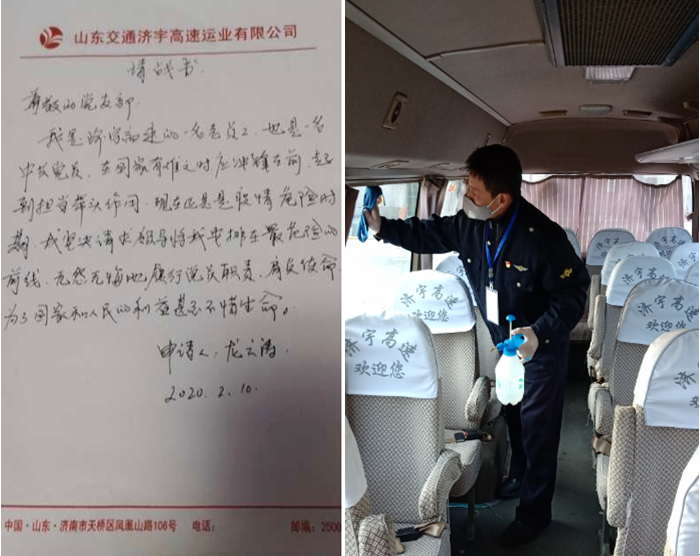 山东交通济宇高速运业有限公司
请战书
尊敬的党支部
我是济宇高速的一名老员工、也是一名
中共党员,在国家有难之时应冲锋在前,起
到担当带头作用,现在正是疫情危险时
期,我坚决请求领导将我安排在最危险的
前线,无怨无悔地履行党员职责,肩负使命
为了国家和人民的利益甚至不惜生命。
申请人:龙云涛
2020.2.10.
中国·山东·济南市天桥区凤凰山路106号 电话: 邮编:2500
济宇高速
欢迎您
济宇高速
欢迎您
济宇高速
欢迎您
济宇高速
欢迎您